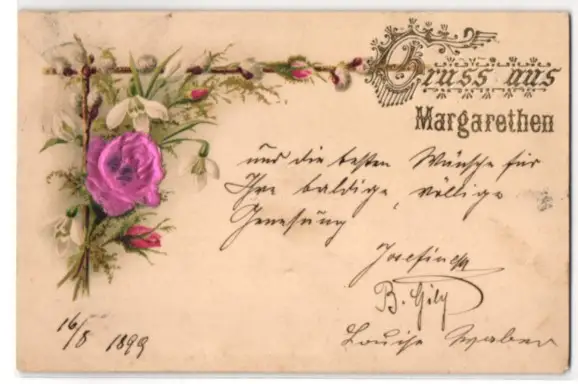 Gruss aus
Margarethen
und die besten Wünsche für
Ihre baldige, völlige
Genesung
Josefine
B. Gily
Louise
16/8 1899